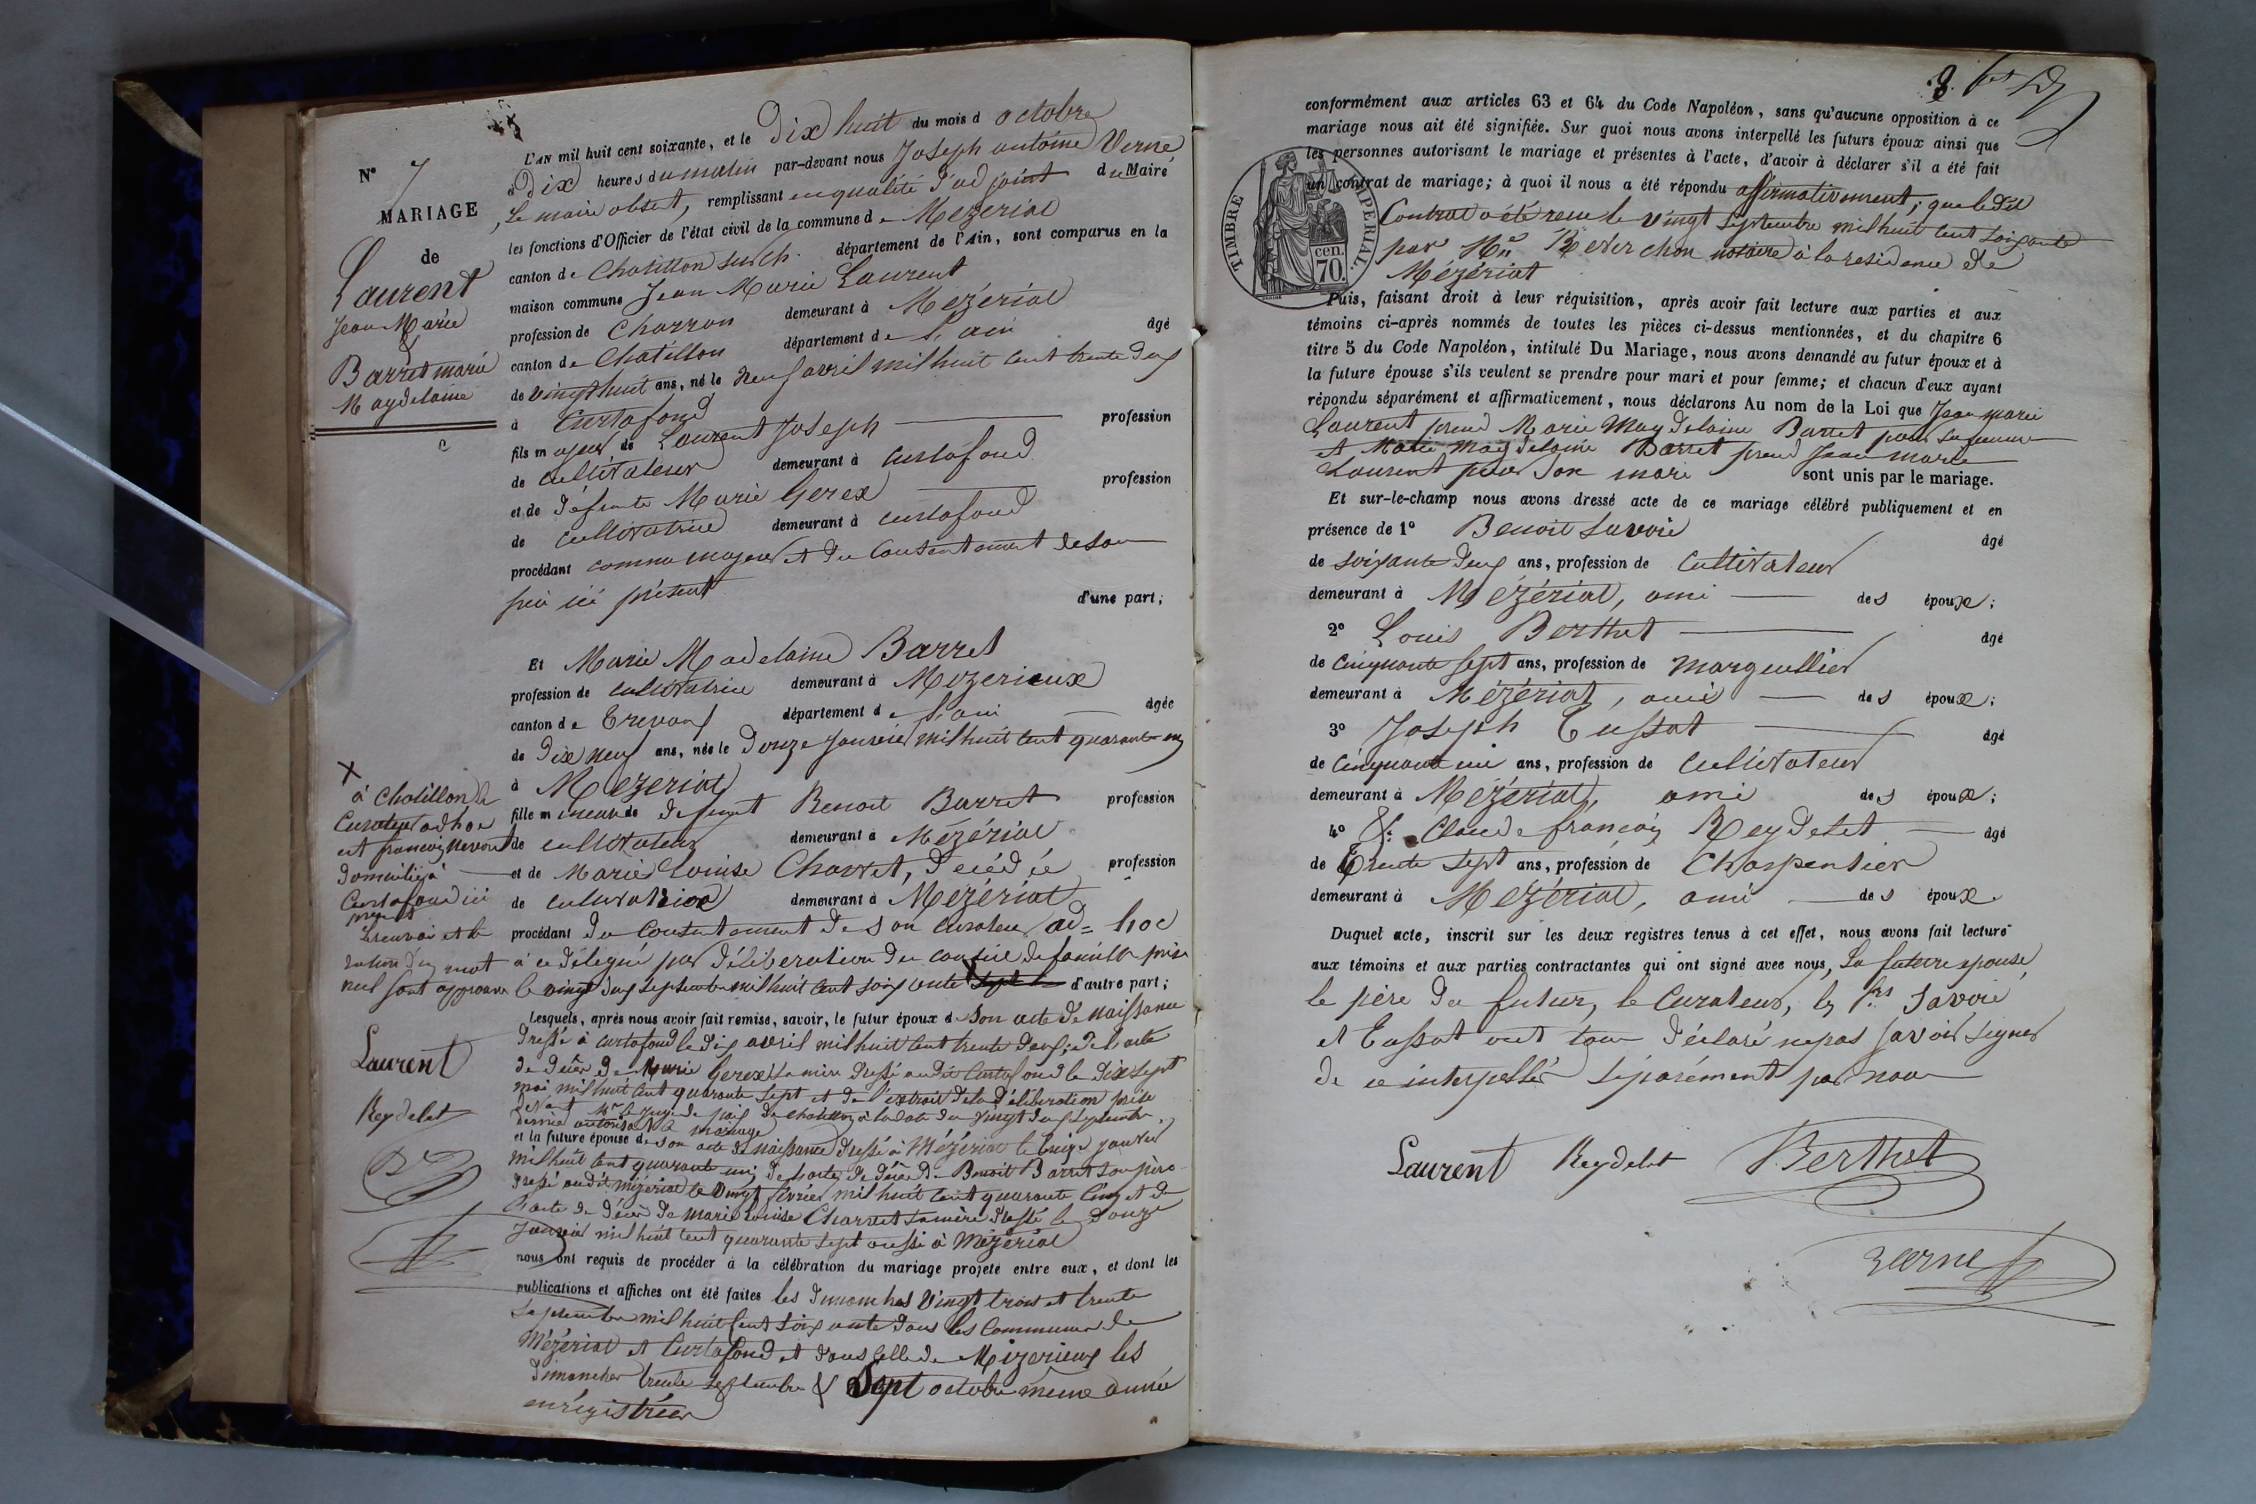 L'AN mil huit cent soixante, et le Dix huit du mois d octobre
N° 7
à Dix heures du matin par-devant nous Joseph antoine Verne
MARIAGE
Le maire absent, remplissant en qualité d'adjoint du Maire
les fonctions d'Officier de l'état civil de la commune de Mézériat
de
canton de Chatillon sur ch. département de l'Ain, sont comparus en la
Laurent
maison commune Jean Marie Laurent
Jean Marie
&
profession de Charron demeurant à Mézériat
Barret marie
canton de Chatillon département de l'ain âgé
Magdelaine
de vingt huit ans, né le neuf avril mil huit cent trente deux
à Curtafond
fils majeur de Laurent Joseph profession
de cultivateur demeurant à curtafond
et de défunte Marie Gerex profession
de cultivatrice demeurant à curtafond
procédant comme majeur et du Consentement de son
père ici présent d'une part;
Et Marie Madelaine Barret
profession de cultivatrice demeurant à Mizerieux
canton de Trevoux département de l'ain âgée
de Dix neuf ans, née le Douze Janvier mil huit cent quarante un
à Mézériat
fille mineure de defunt Benoit Barret profession
de cultivateur demeurant à Mézériat
et de Marie Louise Charvet, Décédée profession
de cultivatrice demeurant à Mézériat
procédant du Consentement de son Curateur ad-hoc
à ce délégué par déliberation du conseil de famille prise
le vingt deux septembre mil huit cent soixante d'autre part;
X
à Chatillon le
Curateur ad hoc
est françois
domicilié à
Curtafond ici
présent
Le renvoi et la
rature d'un mot
nul sont approuvés
Laurent
Reydelet
Lesquels, après nous avoir fait remise, savoir, le futur époux de son acte de naissance
dressé à curtafond le dix avril mil huit cent trente deux; de l'acte
de décès de Marie Gerex sa mère dressé au dit Curtafond le dix sept
mai mil huit cent quarante sept et de l'extrait de la déliberation prise
devant Mr le juge de paix de chatillon à la date du vingt deux septembre
dernier autorisant le mariage
et la future épouse de son acte de naissance dressé à Mézériat le treize janvier
mil huit cent quarante un; de l'acte de décès de Benoit Barret son père
dressé au dit mézériat le vingt février mil huit cent quarante cinq et de
l'acte de décès de marie Louise Charvet sa mère dressé le douze
Janvier mil huit cent quarante sept aussi à Mézériat
nous ont requis de procéder à la célébration du mariage projeté entre eux, et dont les
publications et affiches ont été faites les dimanches Vingt trois et trente
septembre mil huit cent soixante dans les Communes de
Mézériat et Curtafond et dans celle de Mizerieux les
dimanches trente septembre & Sept octobre même année
enrégistrées
conformément aux articles 63 et 64 du Code Napoléon, sans qu'aucune opposition à ce
mariage nous ait été signifiée. Sur quoi nous avons interpellé les futurs époux ainsi que
les personnes autorisant le mariage et présentes à l'acte, d'avoir à déclarer s'il a été fait
un contrat de mariage; à quoi il nous a été répondu affirmativement; que le dit
Contrat a été reçu le vingt septembre mil huit cent soixante
par Me notaire à la residence de
Mézériat
TIMBRE IMPERIAL.
70. cen.
Puis, faisant droit à leur réquisition, après avoir fait lecture aux parties et aux
témoins ci-après nommés de toutes les pièces ci-dessus mentionnées, et du chapitre 6
titre 5 du Code Napoléon, intitulé Du Mariage, nous avons demandé au futur époux et à
la future épouse s'ils veulent se prendre pour mari et pour femme; et chacun d'eux ayant
répondu séparément et affirmativement, nous déclarons Au nom de la Loi que Jean marie
Laurent prend Marie Magdelaine Barret pour sa femme
et Marie Magdelaine Barret prend Jean marie
Laurent pour son mari sont unis par le mariage.
Et sur-le-champ nous avons dressé acte de ce mariage célébré publiquement et en
présence de 1° Benoit Savoie âgé
de soixante deux ans, profession de Cultivateur
demeurant à Mézériat, ami des époux;
2° Louis Berthet âgé
de Cinquante sept ans, profession de marguillier
demeurant à Mézériat, ami des époux;
3° Joseph Cussat âgé
de Cinquante un ans, profession de cultivateur
demeurant à Mézériat, ami des époux;
4° &. Claude françois Reydelet âgé
de Trente sept ans, profession de Charpentier
demeurant à Mézériat, ami des époux.
Duquel acte, inscrit sur les deux registres tenus à cet effet, nous avons fait lecture
aux témoins et aux parties contractantes qui ont signé avec nous, La future epouse,
le père du futur, le Curateur, les Srs Savoie
et Cussat ont tous déclaré ne pas savoir signer
de ce interpellés séparément par nous
Laurent Reydelet Berthet
Verne